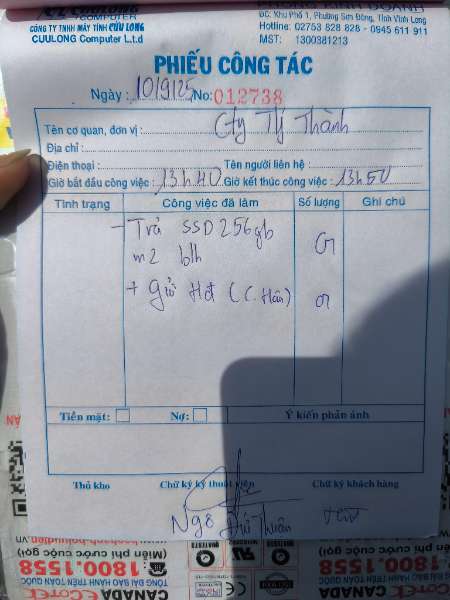 CUULONG
COMPUTER
CÔNG TY TNHH MÁY TÍNH CỬU LONG
CUULONG Computer L.t.d
PHÒNG KINH DOANH
ĐC: Khu Phố 1, Phường Sơn Đông, Tỉnh Vĩnh Long
Hotline: 02753 828 828 - 0945 611 911
MST: 1300381213
PHIẾU CÔNG TÁC
Ngày: 10/9/25 No: 012738
Tên cơ quan, đơn vị: Cty Tý Thành
Địa chỉ:
Điện thoại: Tên người liên hệ:
Giờ bắt đầu công việc: 13h40 Giờ kết thúc công việc: 13h50
Tình trạng Công việc đã làm Số lượng Ghi chú
- Trả SSD 256gb
m2 blh
+ gửi Hđ (C. Hân)
Tiền mặt: Nợ: Ý kiến phản ánh
Thủ kho Chữ ký kỹ thuật viên Chữ ký khách hàng
Ngô Thuận
1800.1558
Miễn phí cước gọi
TỔNG ĐÀI BẢO HÀNH TOÀN QUỐC
1800.1558